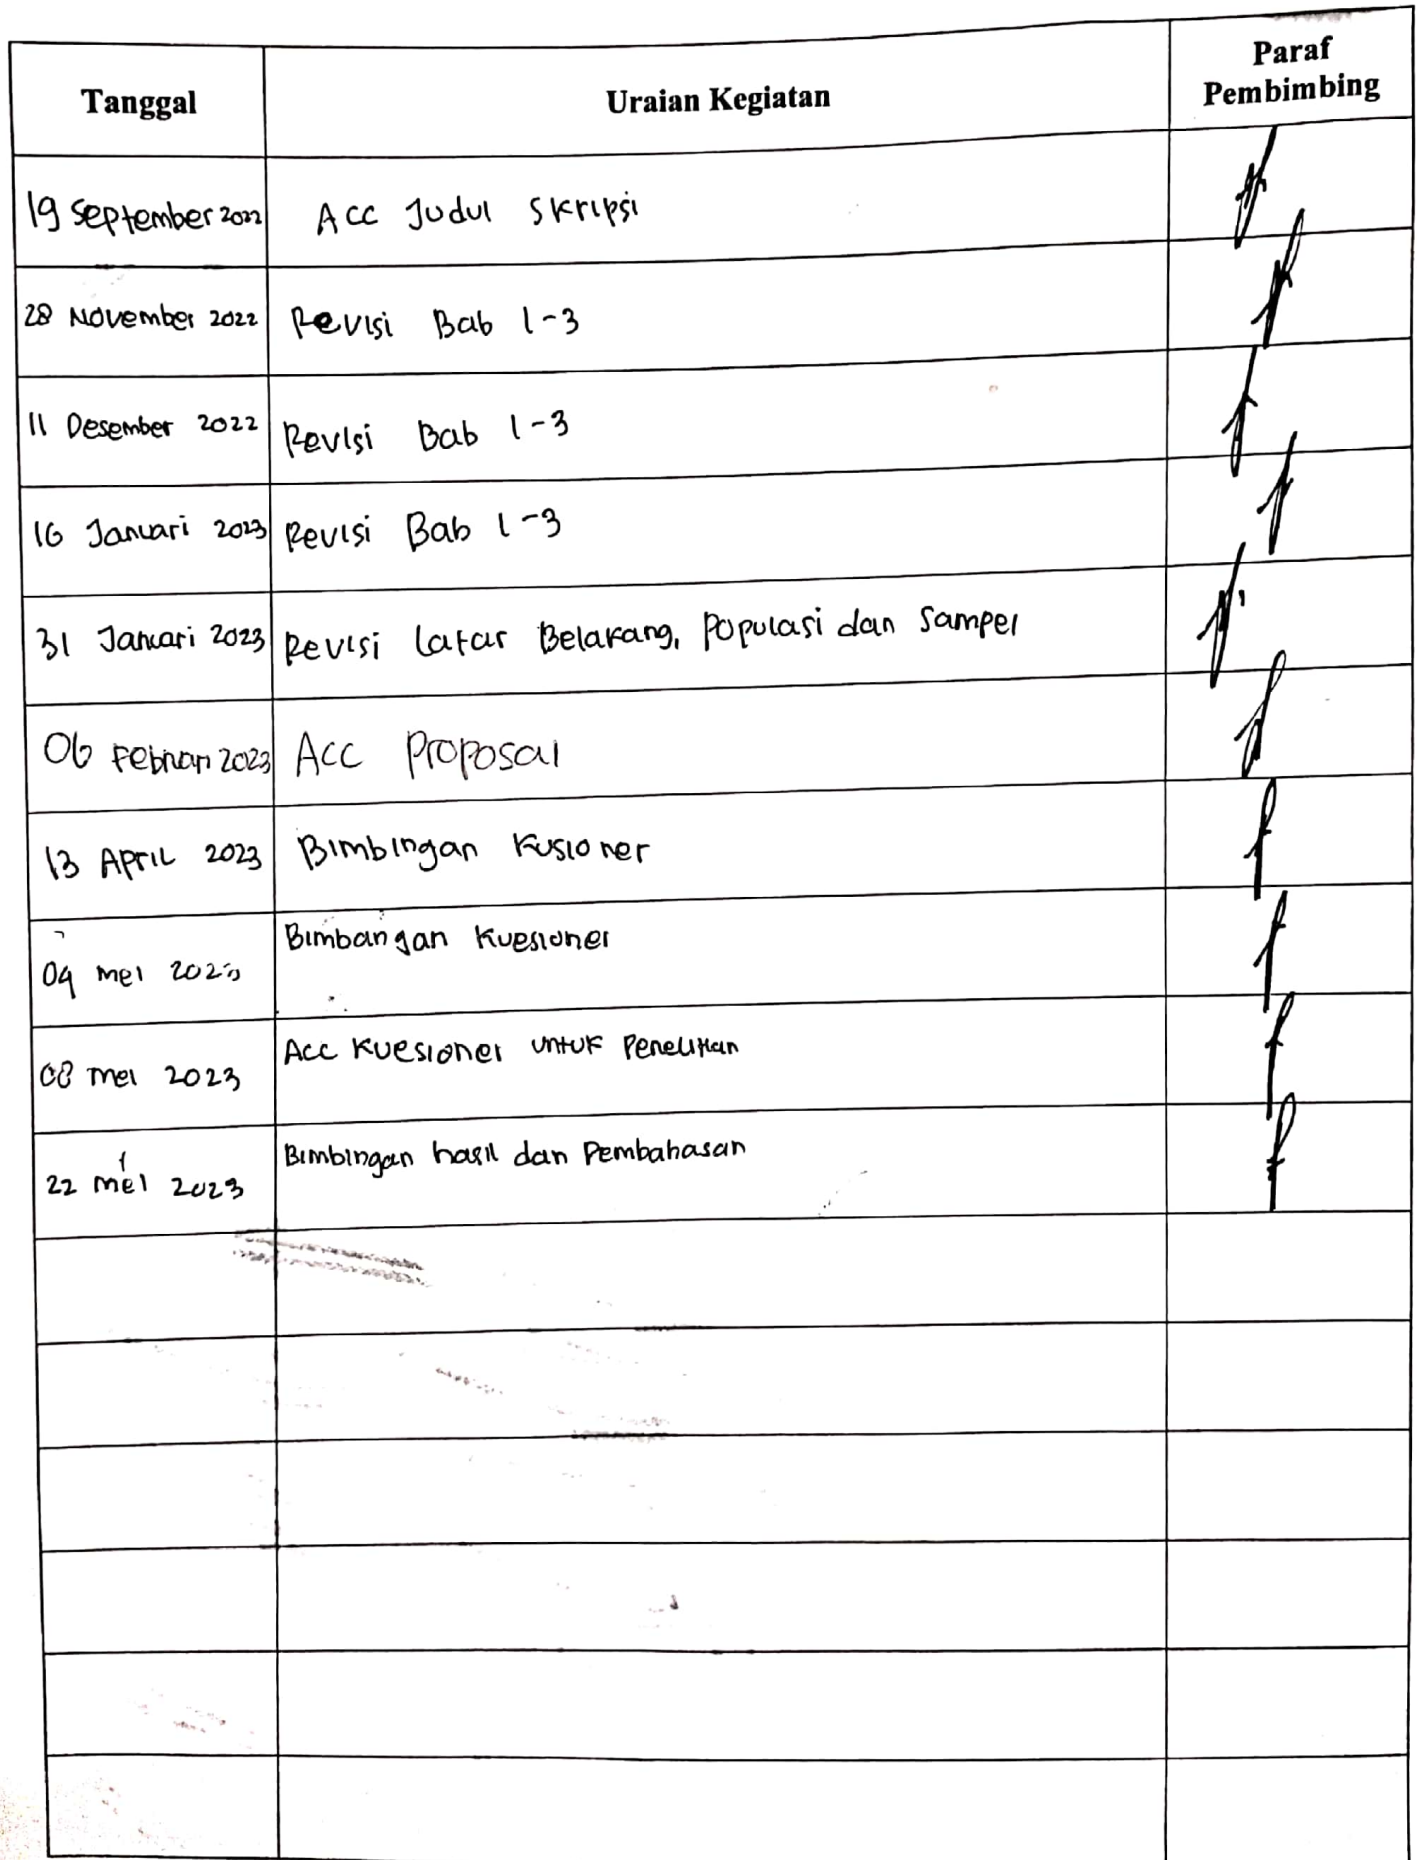 Tanggal Uraian Kegiatan Paraf Pembimbing
19 September 2022 Acc Judul Skripsi
28 November 2022 Revisi Bab 1-3
11 Desember 2022 Revisi Bab 1-3
16 Januari 2023 Revisi Bab 1-3
31 Januari 2023 Revisi Latar Belakang, Populasi dan Sampel
06 Februari 2023 Acc Proposal
13 April 2023 Bimbingan Kusioner
04 Mei 2023 Bimbangan Kuesioner
08 Mei 2023 Acc Kuesioner untuk Penelitian
22 Mei 2023 Bimbingan hasil dan Pembahasan